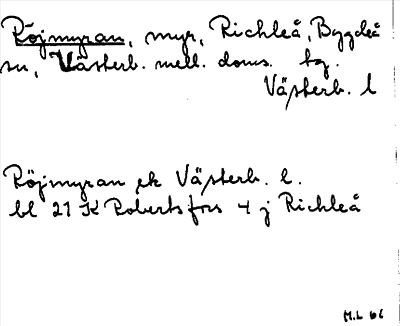 Röjmyran, myr, Richleå, Bygdeå
sn, Västerb. mell. doms. tg.
Västerb. l
Röjmyran ek Västerb. l.
bl 21 K Robertsfors 4 j Richleå
M.L 66